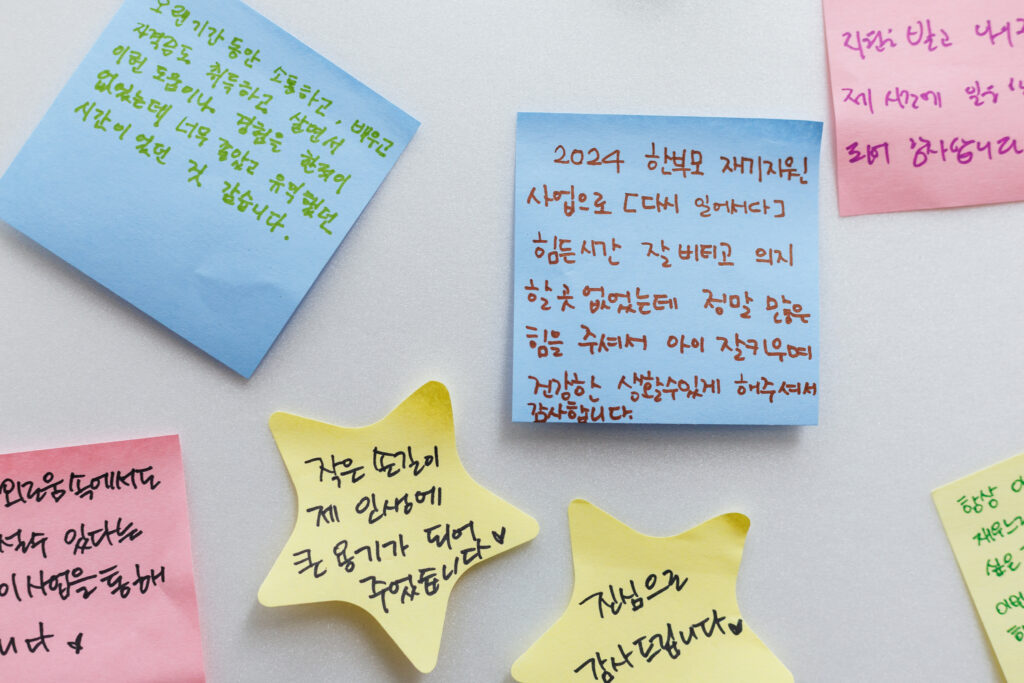 오랜 기간 동안 소통하고, 배우고
자격증도 취득하고 살면서
이런 도움이나 경험을 한적이
없었는데 너무 값있고 유익했던
시간이 었던 것 같습니다.
2024 한부모 재기지원
사업으로 [다시 일어서다]
힘든시간 잘 버티고 의지
할 곳 없었는데 정말 많은
힘을 주셔서 아이 잘키우며
건강한 생활할수있게 해주셔서
감사합니다.
받고
제 시간에
감사합니다
외로움속에서도
설수 있다는
이 사업을 통해
니다
작은 손길이
제 인생에
큰 용기가 되어
주었습니다 ♥
진심으로
감사드립니다 ♥
항상
싶은